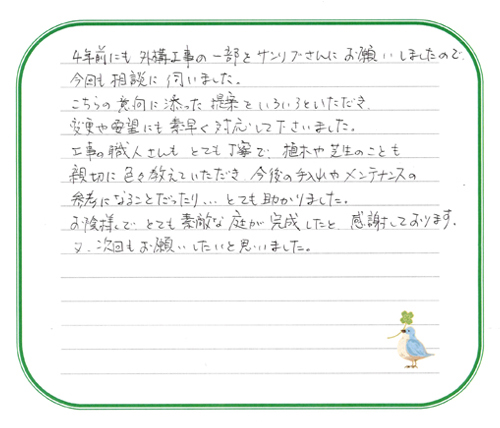 4年前にも外構工事の一部をサンリブさんにお願いしましたので
今回も相談に伺いました。
こちらの意向に添った提案をいろいろといただき
変更や要望にも素早く対応して下さいました。
工事の職人さんもとても丁寧で、植木や芝生のことも
親切に色々教えていただき、今後の手入れやメンテナンスの
参考になることだったり…とても助かりました。
お陰様でとても素敵な庭が完成したと、感謝しております。
又、次回もお願いしたいと思いました。